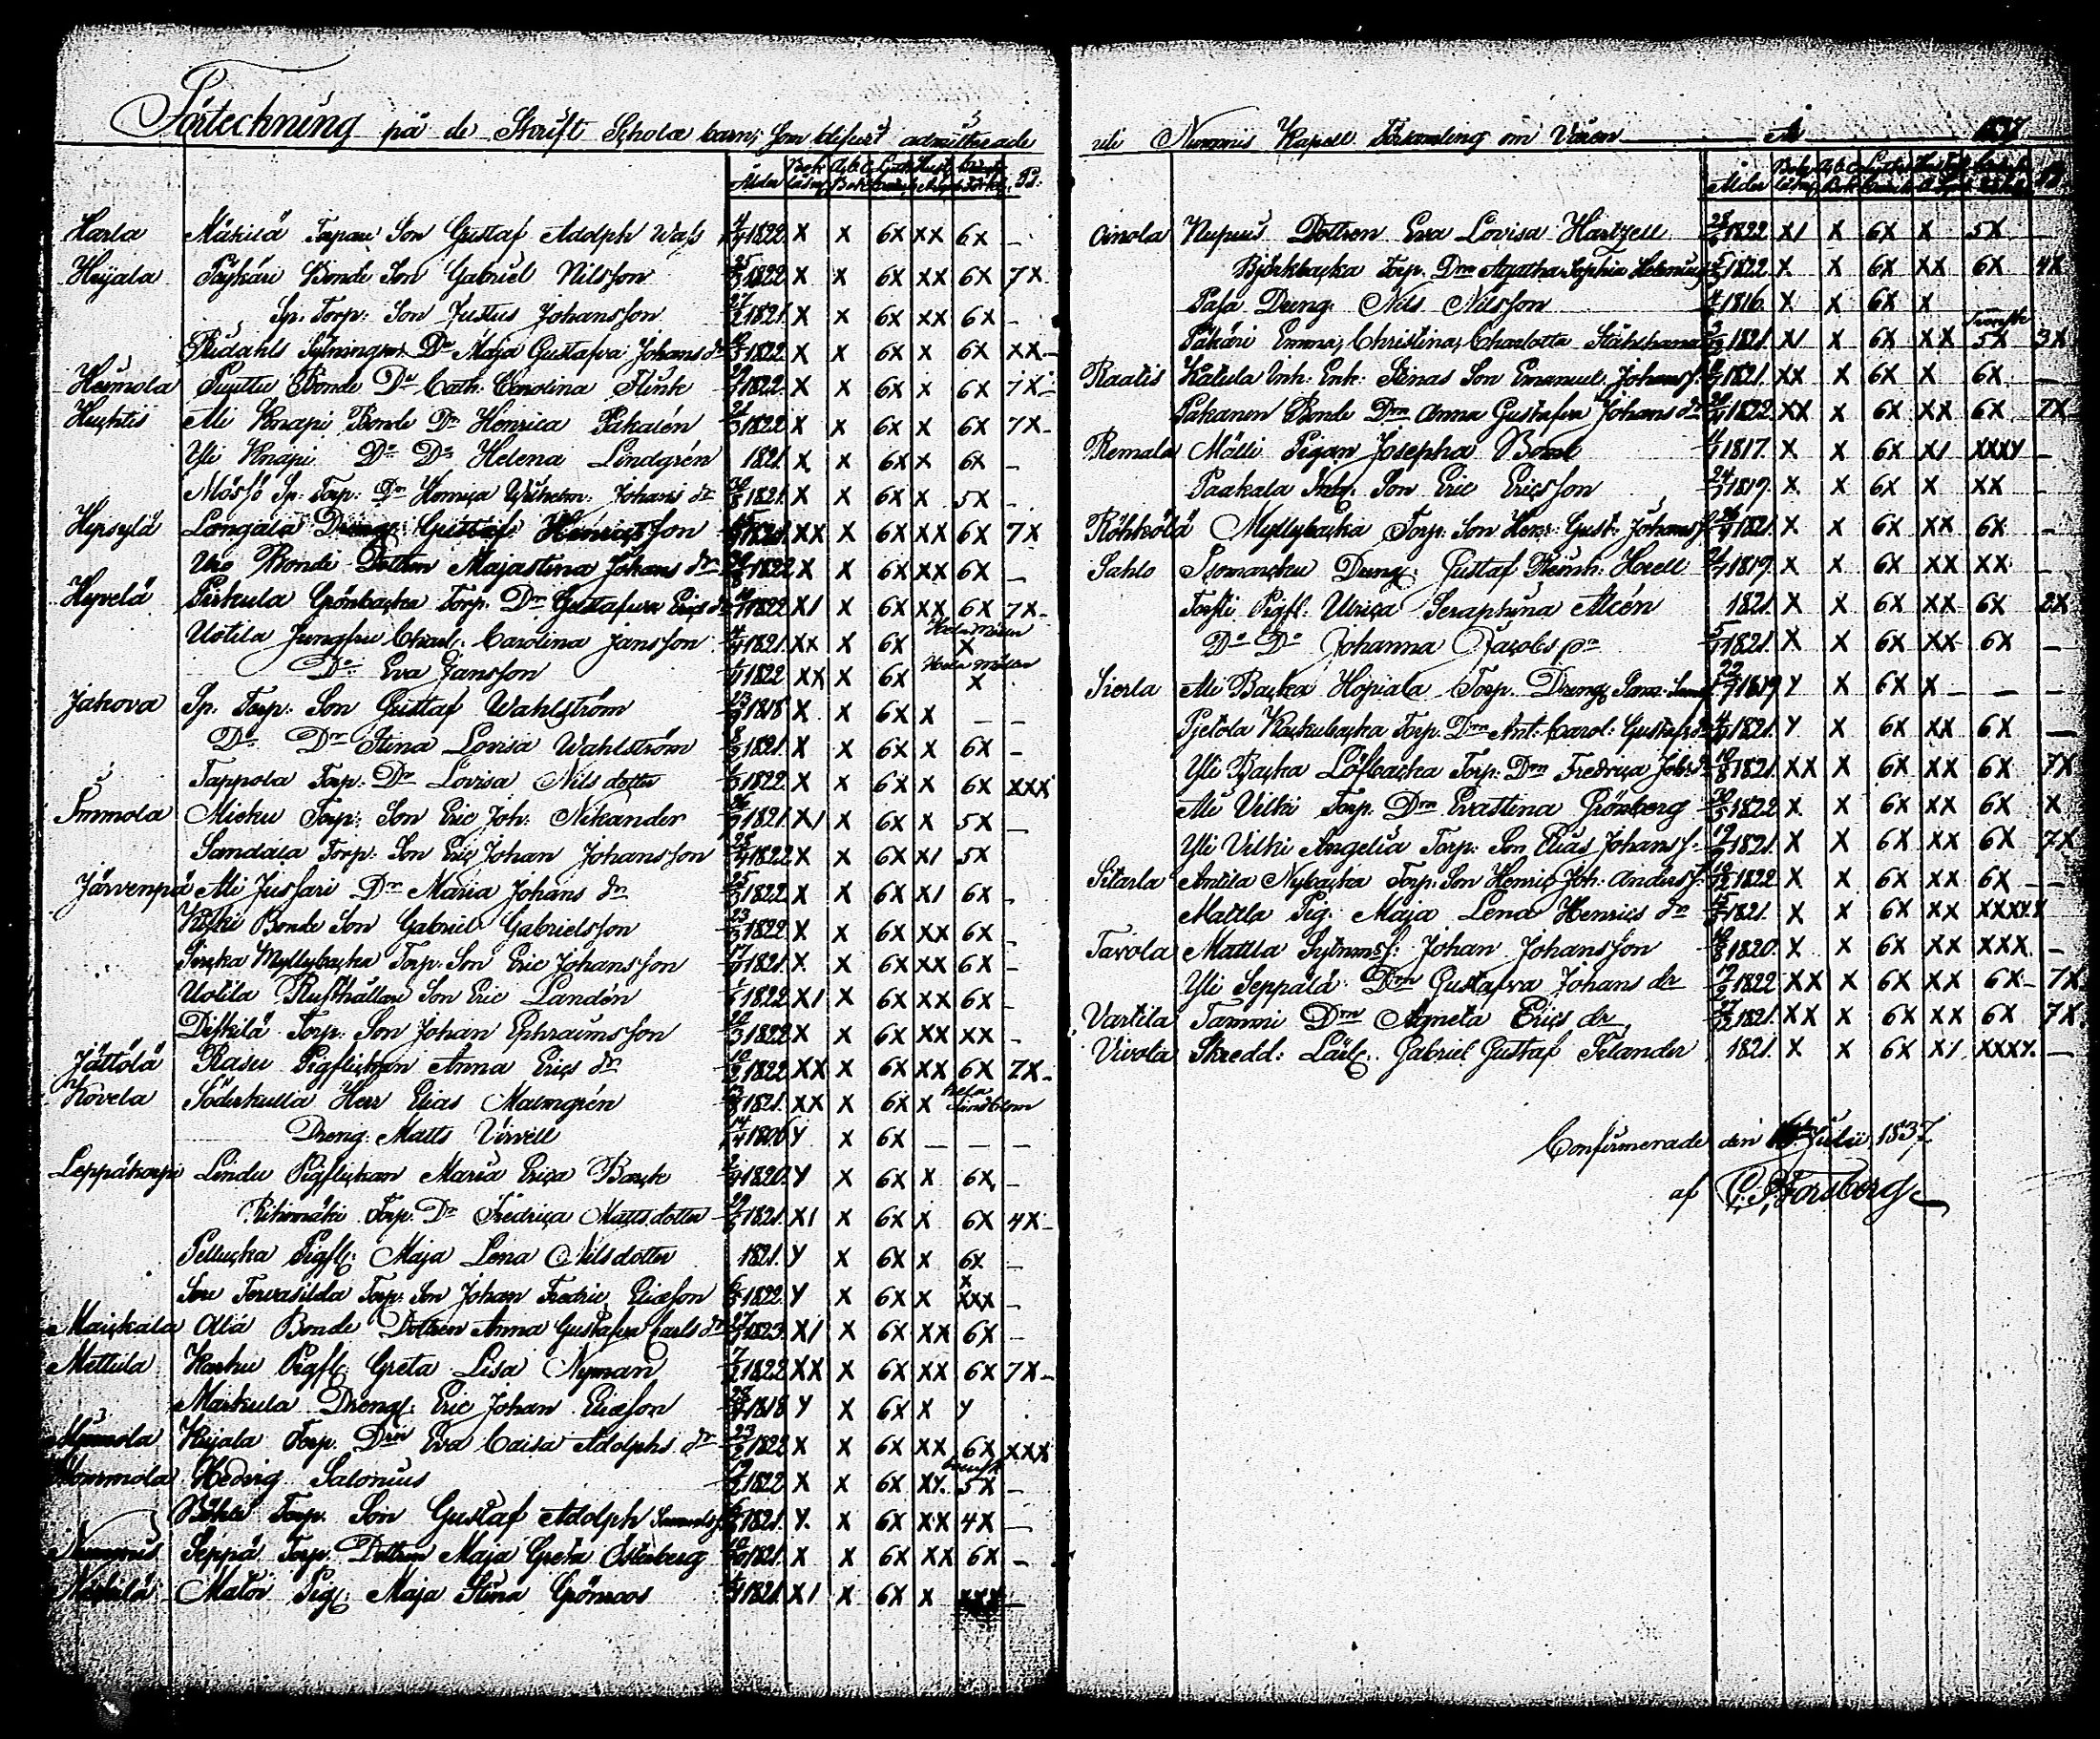 Förteckning på de Skrift Schola barn, som blifvit admitterade
Ålder Bok
Harla Mäkilä Torpare Son Gustaf Adolph Wass 1822 X X 6X XX 6X –
Heijala Pöykäri Bonde Son Gabriel Nilsson 1822 X X 6X XX 6X 7X
Sp. Torp: Son Justus Johansson 1821 X X 6X XX 6X –
Maja Gustafva Johans dr 1822 X X 6X X 6X XX –
Heimola Puittu Bonde Dr Cath: Carolina Flink 1822 X X 6X X 6X 7X –
Huhtis Ali Knapi Bonde Dr Henrica Pakalén 1822 X X 6X X 6X 7X –
Yli Knapi Do Dr Helena Lindgrén 1821. X X 6X X 6X –
Sp. Torp: Dr Henrica Johans dr 1821. X X 6X X 5X –
Hyrsylä Langala Dreng: Gustaf Henricsson XX X 6X XX 6X 7X
Uro Bonde Dottren Majastina Johans dr 1822 X X 6X XX 6X –
Hyvelä Pirkula Grönbacka Torp. Dr Gustafva Erics dr 1822 X1 X 6X XX 6X 7X –
Uotila Jungfru Charl: Carolina Jansson 1821. XX X 6X X
Do Eva Jansson 1822 XX X 6X X
Jakova Sp. Torp: Son Gustaf Wahlström 1818 X X 6X X – –
Do Dr Stina Lovisa Wahlström 1821. X X 6X X 6X –
Tappola Torp: Dr Lovisa Nils dotter 1822 X X 6X X 6X XXX
Immola Micku Torp: Son Eric Joh: Nikander 1821. X1 X 6X X 5X –
Sandala Torp: Son Eric Johan Johansson 1822 X X 6X X1 5X
Järvenpä Ali Jussari Dr Maria Johans dr 1822 X X 6X X1 6X –
Koski Bonde Son Gabriel Gabrielsson 1822 X X 6X XX 6X –
Sircka Myllybacka Torp. Son Eric Johansson 1821. X X 6X XX 6X –
Uotila Rusthållare Son Eric Landén 1822 X1 X 6X XX 6X –
Diskilä Torp: Son Johan Ephraimsson 1822 X X 6X XX XX –
Jättölä Rasu Pigflickan Anna Erics dr 1822 XX X 6X XX 6X 7X –
Kovela Söderkulla Herr Elias Malmgrén 1821. XX X 6X X
Dreng: Matts Virvell 1806 Y X 6X – – –
Leppäkorpi Lindu Pigflickan Maria Erica Back 1820. Y X 6X X 6X –
Rihimäki Torp. Dr Fredrica Matts dotter 1821. X1 X 6X X 6X 4X –
Pellucka Pigfl: Maja Lena Nilsdotter 1821. Y X 6X X 6X –
Torvasilda Torp: Son Johan Fredric Ericsson 1822. Y X 6X X XXX –
Maickala Ola Bonde Dottren Anna Gustafva Carls dr 1823. X1 X 6X XX 6X –
Mettula Harku Pigfl: Greta Lisa Nyman 1822 XX X 6X XX 6X 7X –
Markula Dreng: Eric Johan Ericsson 1818 Y X 6X X Y
Kujala Torp. Drn Eva Caisa Adolphs dr 1822 X X 6X XX 6X XXX
Nommola Hedvig Salonius 1822 X X 6X XX. 5X –
Torp. Son Gustaf Adolph 1821. Y. X 6X XX 4X –
Nummis Seppä Torp. Dottren Maja Greta Österberg 1821. X X 6X XX 6X –
Matöi Pig: Maja Stina Grönroos 1821. X1 X 6X X XXX –
uti Nummis Kapell Församling om Våren År 1837
Ålder Bok
Oinola Nupus Dottren Eva Lovisa Hartzell 1822 X1 X 6X X 5X –
Björkbacka Torp. Drn Agatha Sophia Helenius 1822 X. X 6X XX 6X 4X
Pasa Dreng: Nils Nilsson 1816. X. X 6X X
Päkäri Emma, Christina, Charlotta Stählhane 1821. X1 X 6X XX 5X 3X
Raatis Katula Inh. Enk: Stinas Son Emanuel Johanss. 1821. XX X 6X X 6X –
Pakanen Bonde Drn Anna Gustafva Johans dr 1822 XX X 6X XX 6X 7X
Remala Mälli Pigan Josepha 1817. X X 6X X1 XXXY –
Paakala Son Eric Ericsson 1819. X X 6X X XX –
Röhkölä Myllybacka Torp. Son Henr: Gust: Johanss. 1821. X X 6X XX 6X –
Sahlo Isomarcku Dreng: Gustaf Reinh: Horell 1819. X X 6X XX XX –
Torsti Pigfl. Ulrica Seraphina Alcén 1821. X X 6X XX 6X 2X
Do Do Johanna Jacobs dr 1821. X X 6X XX 6X –
Sierla Ali Backa Hopiala Torp. Dreng 1819 Y X 6X X – – –
Pjetola Kackubacka Torp. Drn Ant: Carol: Gustafs dr 1821. Y X 6X XX 6X –
Yli Backa Löfbacka Torp: Drn Fredrica Johs dr 1821. XX X 6X XX 6X 7X
Ali Vilki Torp. Drn Evastina Grönberg 1822 X. X 6X XX 6X X
Yli Vilki Angelia Torp: Son Elias Johanss. 1821. X X 6X XX 6X 7X
Sitarla Antila Nybacka Torp: Son Henric Joh: Anderss. 1822 X X 6X XX 6X – –
Mattla Pig: Maja Lena Henrics dr 1821. X X 6X XX XXXX
Tavola Mattla Sytnings: Johan Johansson 1820. X X 6X XX XXX. –
Yli Seppälä Drn Gustafva Johans dr 1822 XX X 6X XX 6X – 7X
Vartila Tammi Drn Agneta Erics dr 1821. XX X 6X XX 6X 7X
Vivola Skredd: Lärl: Gabriel Gustaf Felander 1821. X X 6X X1 XXXY. –
Confirmerade den Julii 1837.
af C. P. Forsberg